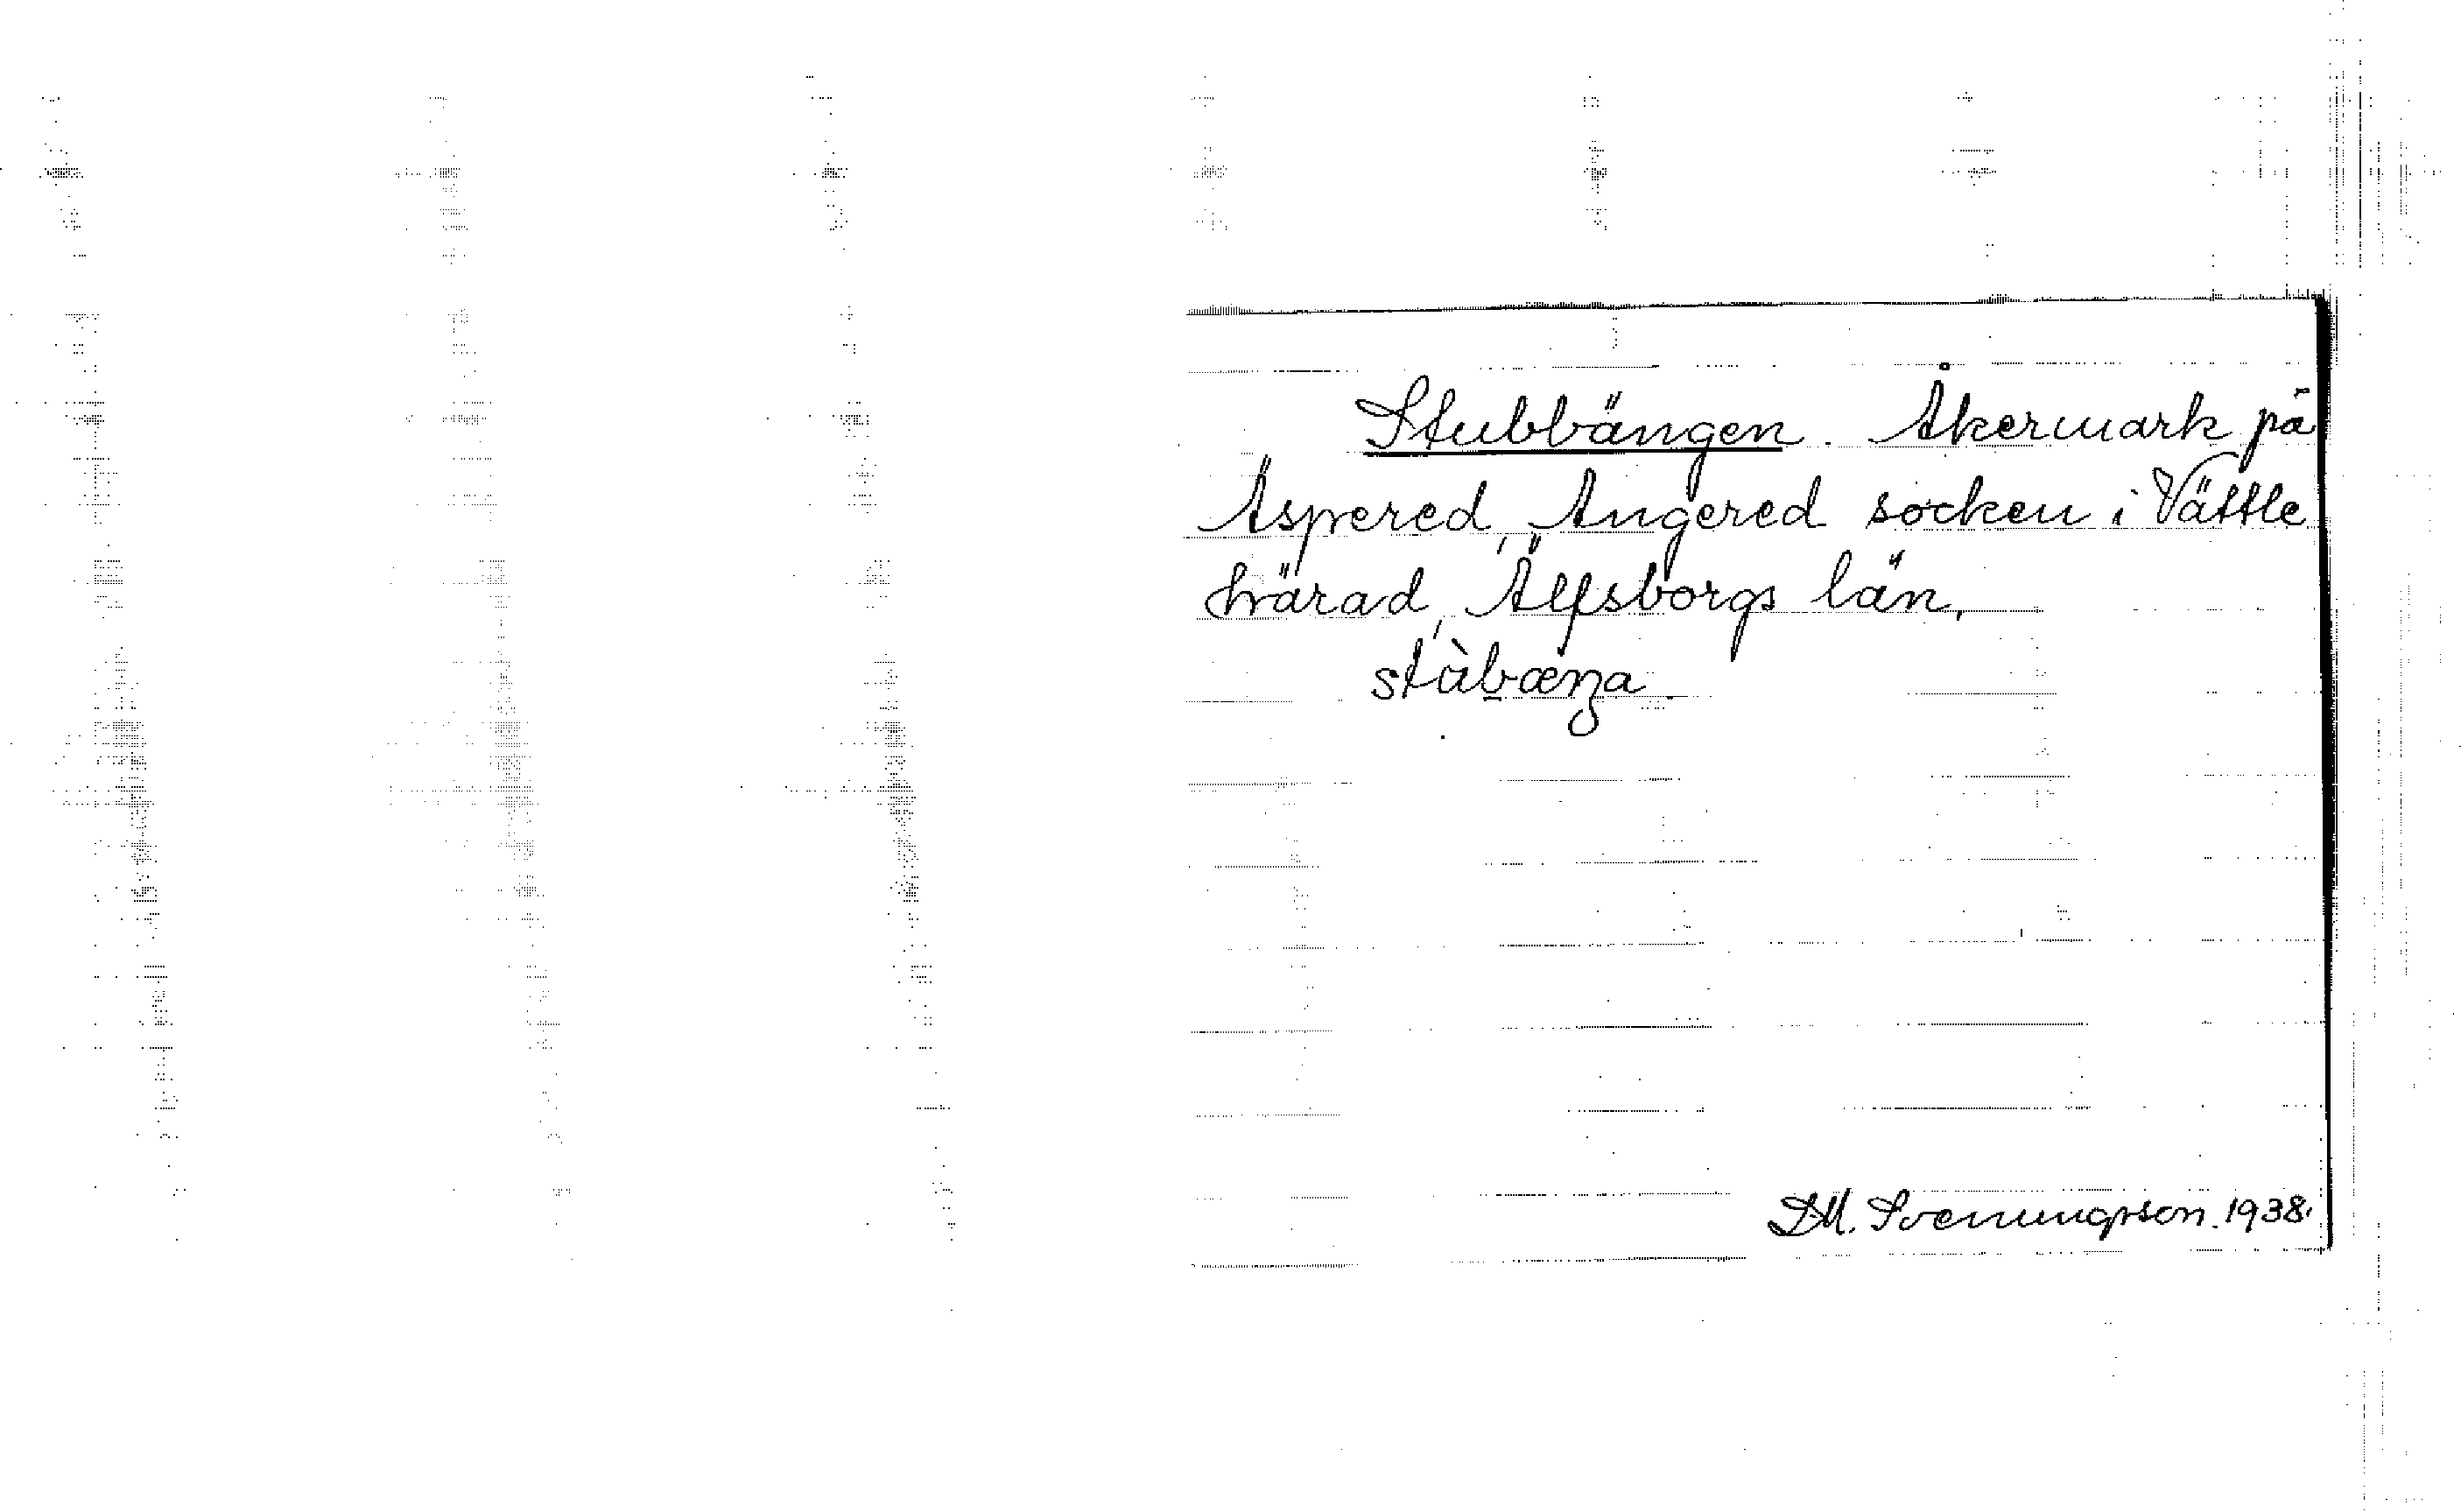 Stubbängen. Åkermark på
Äspered, Angered socken i Vättle
härad, Älfsborgs län.
stùbæŋa
D.M. Svenungsson. 1938.